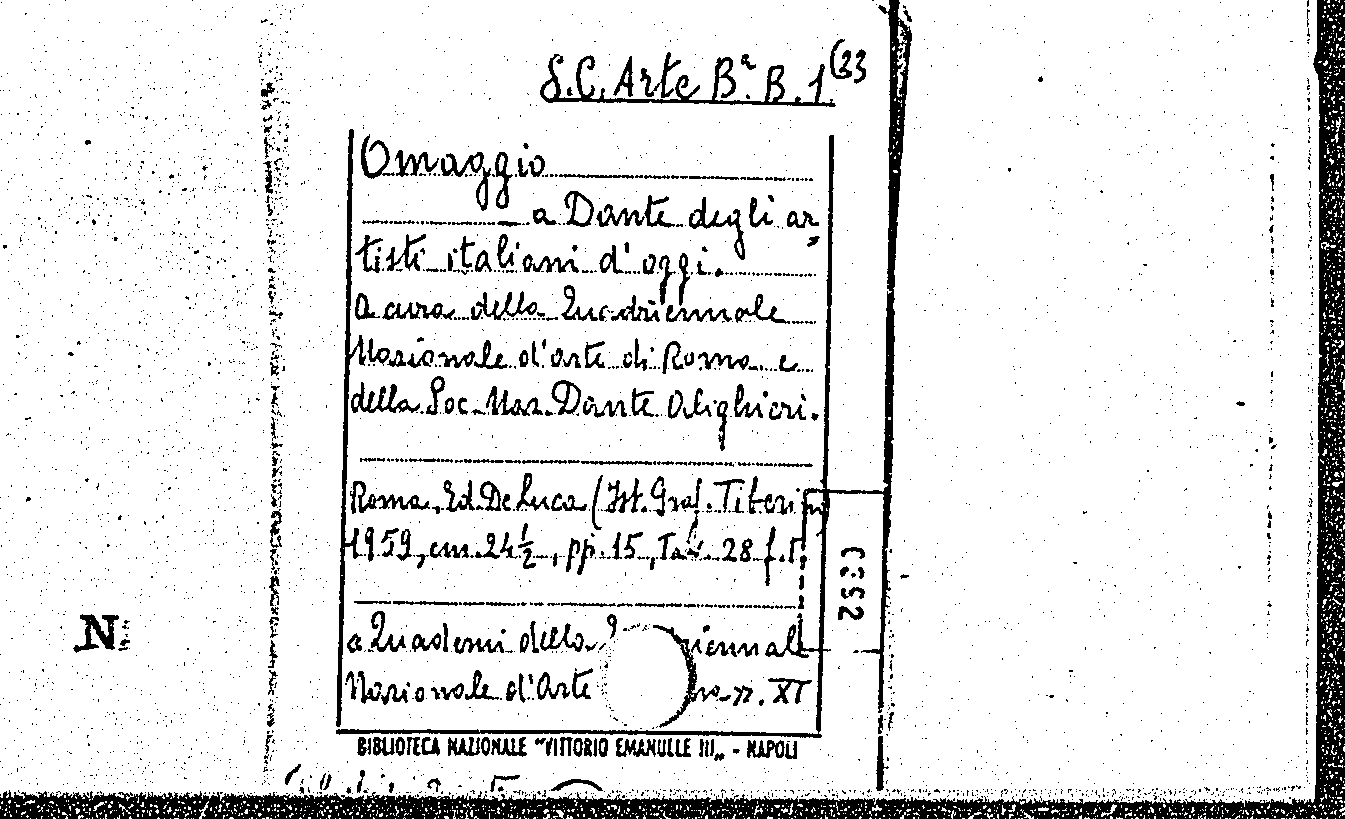 S.C. Arte Bª. B. 1 (33
Omaggio
a Dante degli ar
tisti italiani d'oggi.
A cura della Quadriennale
Nazionale d'arte di Roma e
della Soc. Naz. Dante Alighieri.
Roma, Ed. De Luca (Ist. Graf. Tiberino
1959, cm. 24½, pp. 15, Tav. 28 f.t.
a Quaderni della riennale
Nazionale d'Arte n. XI
N
BIBLIOTECA NAZIONALE "VITTORIO EMANUELE III„ - NAPOLI